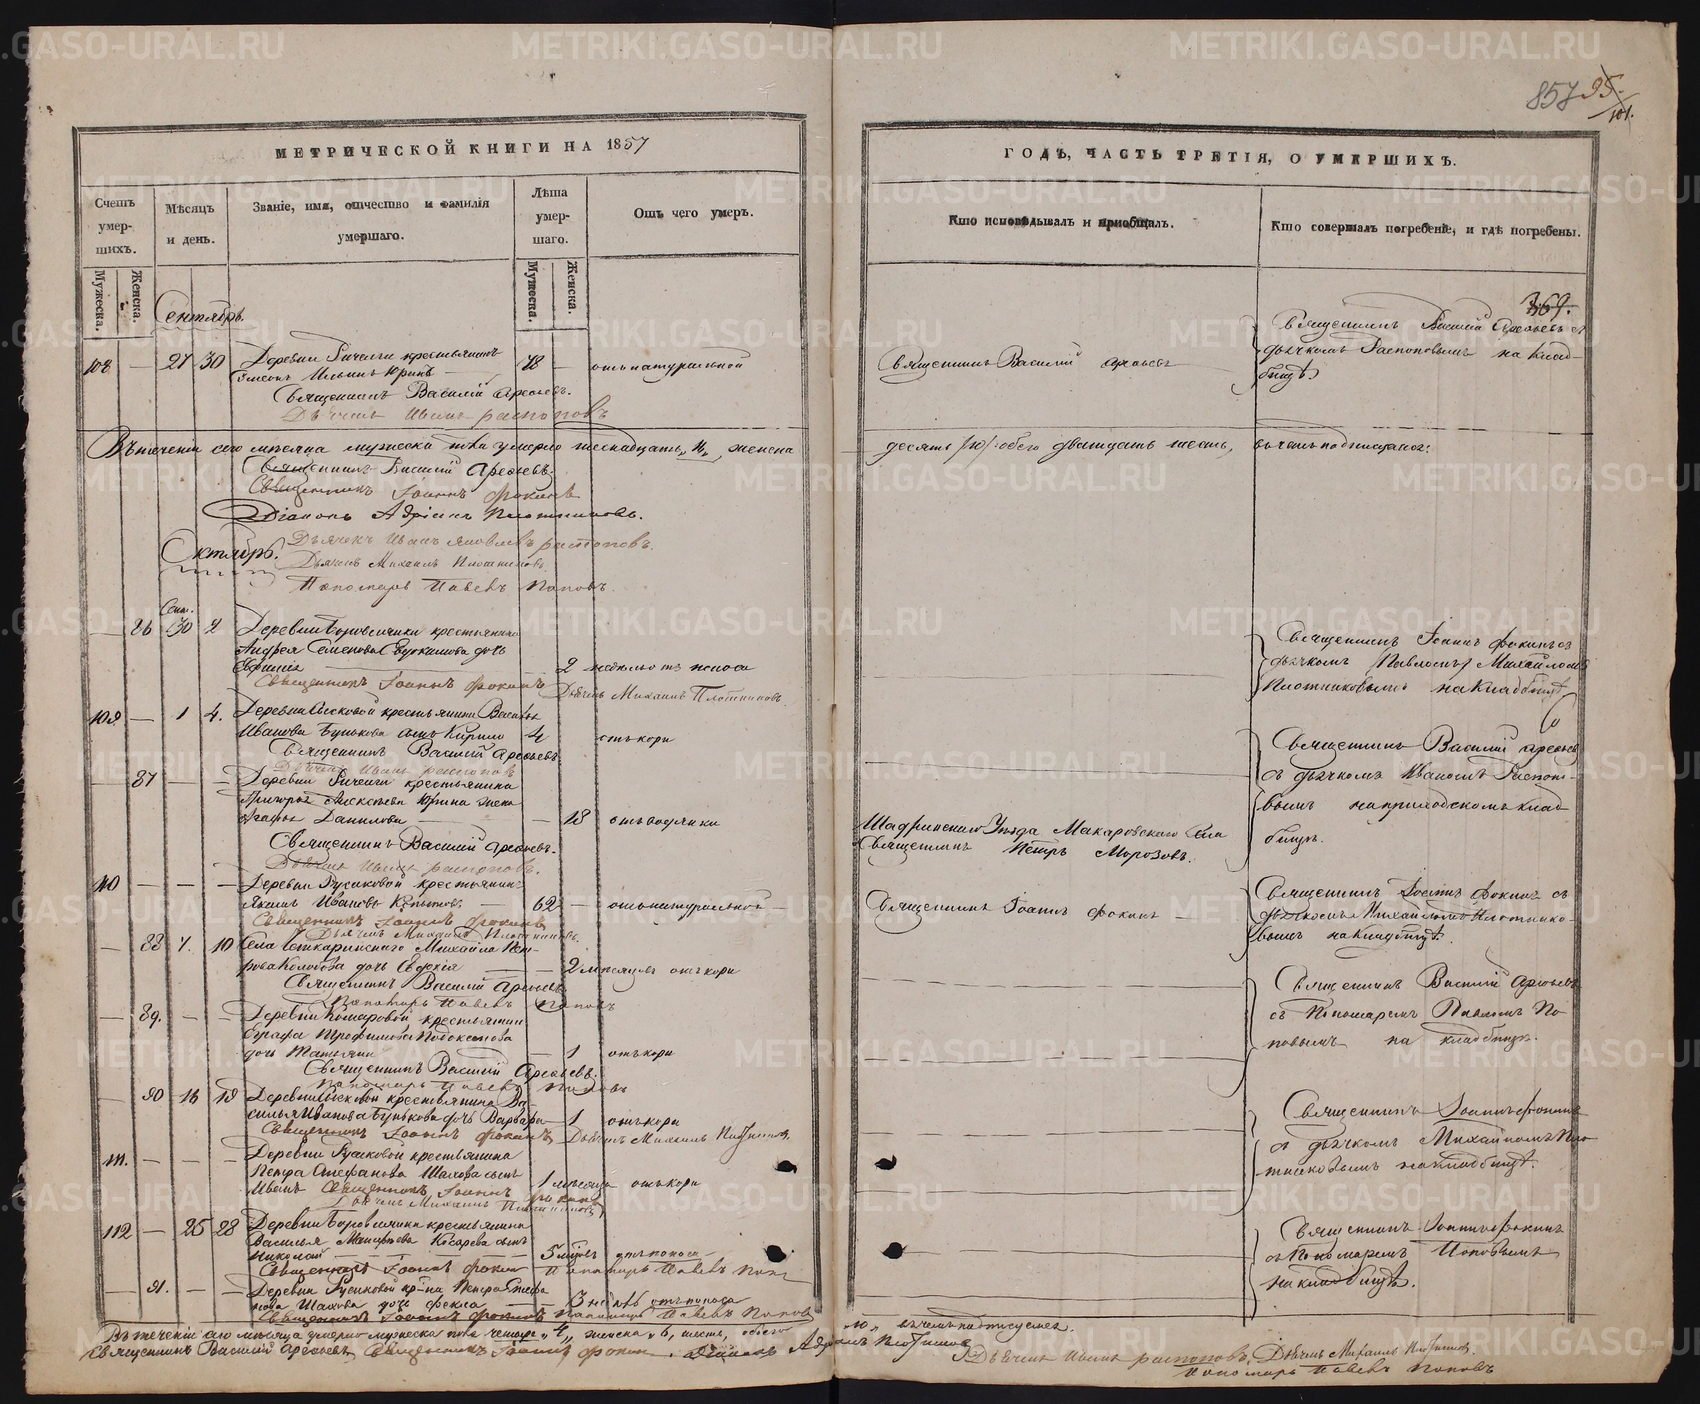 METRIKI.GASO-URAL.RU
857 95.
101.
МЕТРИЧЕСКОЙ КНИГИ НА 1857
ГОДЪ, ЧАСТЬ ТРЕТІЯ, О УМЕРШИХЪ.
Счетъ умер-
шихъ.
Мужеска.
Женска.
Мѣсяцъ
и день.
Званіе, имя, отчество и фамилія
умершаго.
Лѣта
умер-
шаго.
Мужеска.
Женска.
Отъ чего умеръ.
Кто исповѣдывалъ и приобщалъ.
Кто совершалъ погребеніе, и гдѣ погребены.
Сентябрь.
369.
108 — 27 30 Деревни крестьянинъ 78 — отъ натуральной
Ильинъ Юринъ
Священникъ Василій Арефьевъ.
Дьячекъ Иванъ Распоповъ
Священникъ Василій Арефьевъ
Священникъ Василій Арефьевъ съ
дьячкомъ Распоповымъ на клад-
бищѣ
Въ теченіи сего мѣсяца мужеска пола умерло женска
десять /10/ обоего двадцать шесть, въ чемъ подписуемся:
Священникъ Василій Арефьевъ.
Священникъ Іоаннъ Фокинъ
Діаконъ Адріанъ Плотниковъ.
Дьячекъ Иванъ Яковлевъ Распоповъ.
Октябрь.
Дьячекъ Михаилъ Плотниковъ
Пономарь Павелъ Поповъ.
Сент.
— 86 30 2 Деревни крестьянина
Андрея Семенова дочь
— 2 недѣль отъ поноса
Священникъ Іоаннъ Фокинъ Дьячекъ Михаилъ Плотниковъ.
Священникъ Іоаннъ Фокинъ съ
дьячкомъ Михайломъ
Плотниковымъ на кладбищѣ
109. — 1 4. Деревни крестьянина Василья
Иванова Бунькова сынъ Кирило 4 отъ кори
Священникъ Василій Арефьевъ
Дьячекъ Иванъ Распоповъ
Священникъ Василій Арефьевъ
съ дьячкомъ Иваномъ Распопо-
вымъ на приходскомъ клад-
бищѣ.
— 87 — — Деревни крестьянина
Григорья Алексѣева Юрина жена
Агафья Данилова — 18 отъ водянки
Священникъ Василій Арефьевъ.
Дьячекъ Иванъ Распоповъ.
Шадринскаго Уѣзда Макаровскаго Села
Священникъ Петръ Морозовъ.
110 — — — Деревни Русаковой крестьянинъ
Якимъ Ивановъ 62 — отъ натуральной
Священникъ Іоаннъ Фокинъ
Дьячекъ Михаилъ Плотниковъ.
Священникъ Іоаннъ Фокинъ —
Священникъ Іоаннъ Фокинъ съ
дьячкомъ Михайломъ Плотнико-
вымъ на кладбищѣ.
— 88 7. 10 Села Михайла Пет-
рова Колобова дочь Евдокія — 2 мѣсяцевъ отъ кори
Священникъ Василій Арефьевъ
Пономарь Павелъ Поповъ
Священникъ Василій Арефьевъ
съ Пономаремъ Павломъ По-
повымъ на кладбищѣ.
— 89. — — Деревни Комаровой крестьянина
Трофимова
дочь Татьяна — 1 отъ кори
Священникъ Василій Арефьевъ.
Пономарь Павелъ Поповъ
— 90 16 18 Деревни крестьянина Ва-
силья Иванова Бунькова дочь Варвара — 1 отъ кори
Священникъ Іоаннъ Фокинъ Дьячекъ Михаилъ Плотниковъ.
Священникъ Іоаннъ Фокинъ
съ дьячкомъ Михайломъ Пло-
тниковымъ на кладбищѣ.
111. — — — Деревни Русаковой крестьянина
Петра Стефанова Шахова сынъ
Иванъ 1 мѣсяца отъ кори
Священникъ Іоаннъ Фокинъ
Дьячекъ Михаилъ Плотниковъ
112 — 25 28 Деревни крестьянина
Василья Косарева сынъ
Николай 5 отъ поноса
Священникъ Іоаннъ Фокинъ Пономарь Павелъ Поповъ
Священникъ Іоаннъ Фокинъ
съ Пономаремъ Поповымъ
на кладбищѣ.
— 91. — — Деревни Русаковой кр-на Петра Стефа-
нова Шахова дочь Фекла — 3 отъ поноса
Священникъ Іоаннъ Фокинъ Пономарь Павелъ Поповъ
Въ теченіи сего мѣсяца умерло мужеска пола четыре „4„ женска „6„ шесть, обоего „10„ въ чемъ подписуемся.
Священникъ Василій Арефьевъ Священникъ Іоаннъ Фокинъ. Діаконъ Адріанъ Плотниковъ
Дьячекъ Иванъ Распоповъ, Дьячекъ Михаилъ Плотниковъ.
Пономарь Павелъ Поповъ